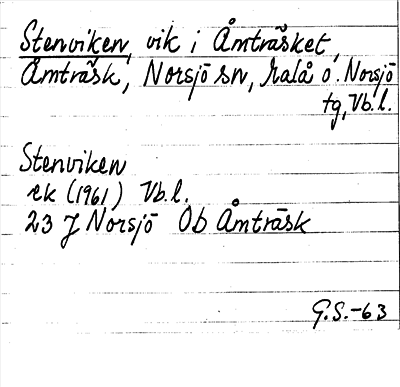 Stenviken, vik i Åmträsket,
Åmträsk, Norsjö sn, Malå o. Norsjö
tg, Vb.l.
Stenviken
ek (1961) Vb.l.
23 J Norsjö Ob Åmträsk
G.S.-63